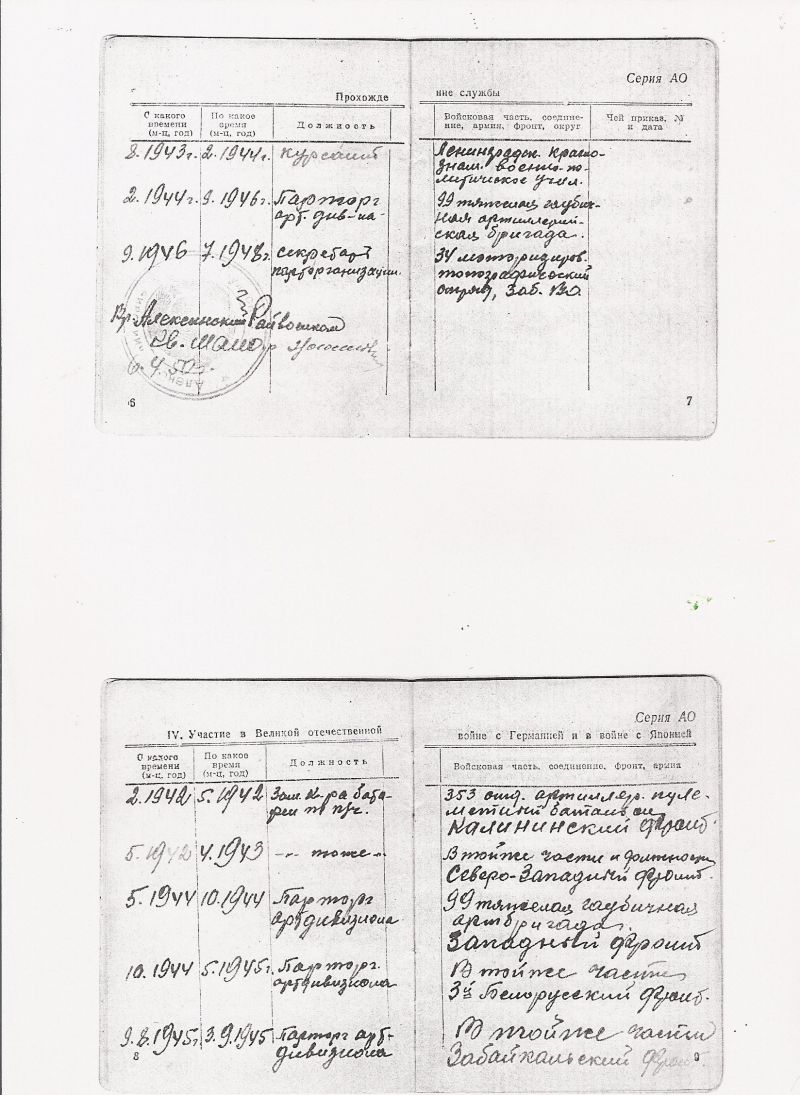 Серия АО
Прохождение службы
С какого времени (м-ц, год)
По какое время (м-ц, год)
Должность
Войсковая часть, соединение, армия, фронт, округ
Чей приказ, № и дата
8.1943г. 2.1944г. курсант
Ленинградск. красно-
знам. военно-по-
литическое учил.
2.1944г. 9.1946г. Парторг
арт. див-на
99 тяжелая гаубич-
ная артиллерий-
ская бригада.
9.1946 7.1948г. секретарь
парторганизации.
34 моторизиров.
топографический
отряд, Заб. ВО.
Вр. Алексинский Райвоенком
6.4.50г.
6
7
Серия АО
IV. Участие в Великой отечественной войне с Германией и в войне с Японией
С какого времени (м-ц, год)
По какое время (м-ц, год)
Должность
Войсковая часть, соединение, фронт, армия
2.1942 5.1942 Зам. к-ра бата-
реи по п/ч.
353 отд. артиллер. пуле-
метный батальон
Калининский фронт.
5.1942 4.1943 -„- тоже -„-
В тойже части и должности
Северо-Западный фронт.
5.1944 10.1944 Парторг
артдивизиона
99 тяжелая гаубичная
артбригада.
Западный фронт
10.1944 5.1945г. Парторг.
артдивизиона
В тойже части
3й Белорусский фронт.
9.8.1945г. 3.9.1945 Парторг арт-
дивизиона
В тойже части
Забайкальский фронт.
8
9